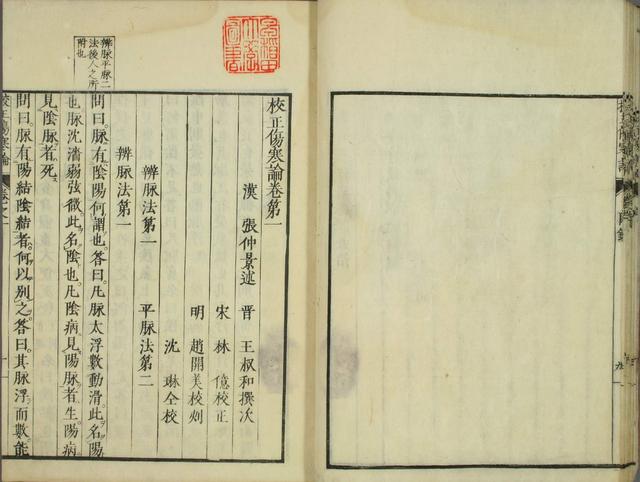 目錄
九
校正傷寒論卷第一
漢 張仲景述 晋 王叔和撰次
宋 林 億校正
明 趙開美校刻
沈 琳仝校
辨脉法第一 平脉法第二
辨脉法第一
辨脉平脉二
法後人之所
附也
問曰脉有陰陽何謂也答曰凡脉太浮數動滑此名陽
也脉沈濇弱弦微此名陰也凡陰病見陽脉者生陽病
見陰脉者死
問曰脉有陽結陰結者何以別之答曰其脉浮而數能
校正傷寒論 卷之一 一